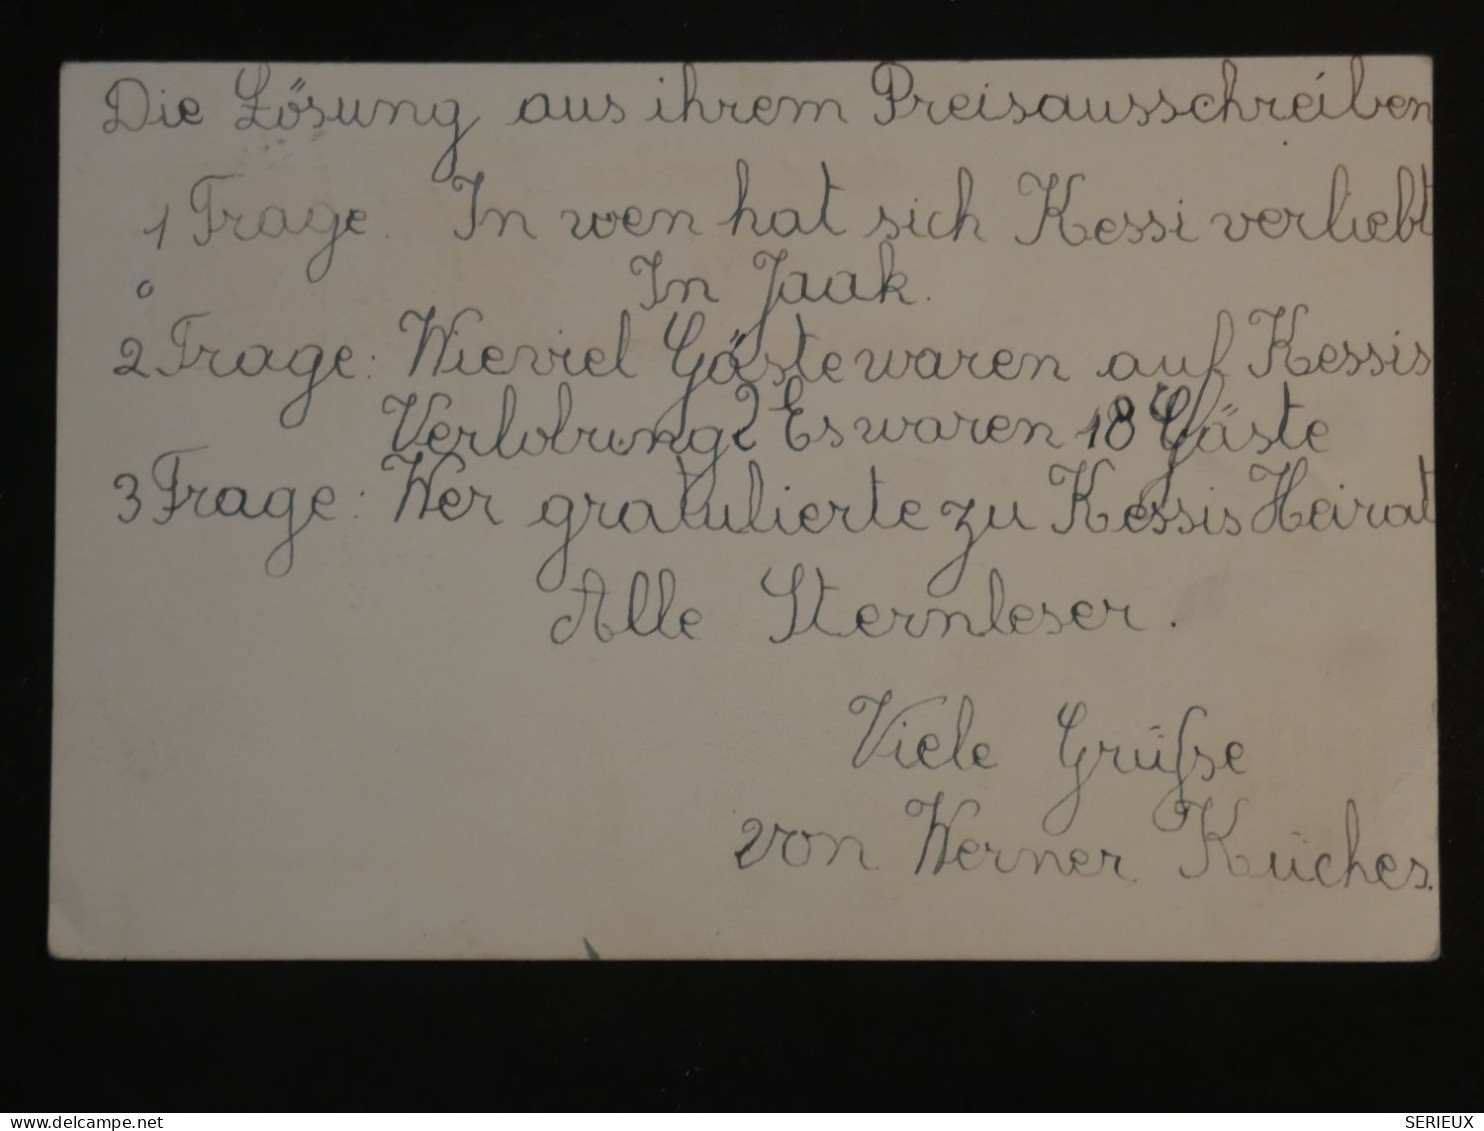 Die Lösung aus ihrem Preisausschreiben
1 Frage. In wen hat sich Kessi verliebt
In Jaak.
2 Frage: Wieviel Gäste waren auf Kessis
Verlobung? Es waren 18 Gäste
3 Frage: Wer gratulierte zu Kessis Heirat
Alle Sternleser.
Viele Grüße
von Werner Küches.
SERIEUX